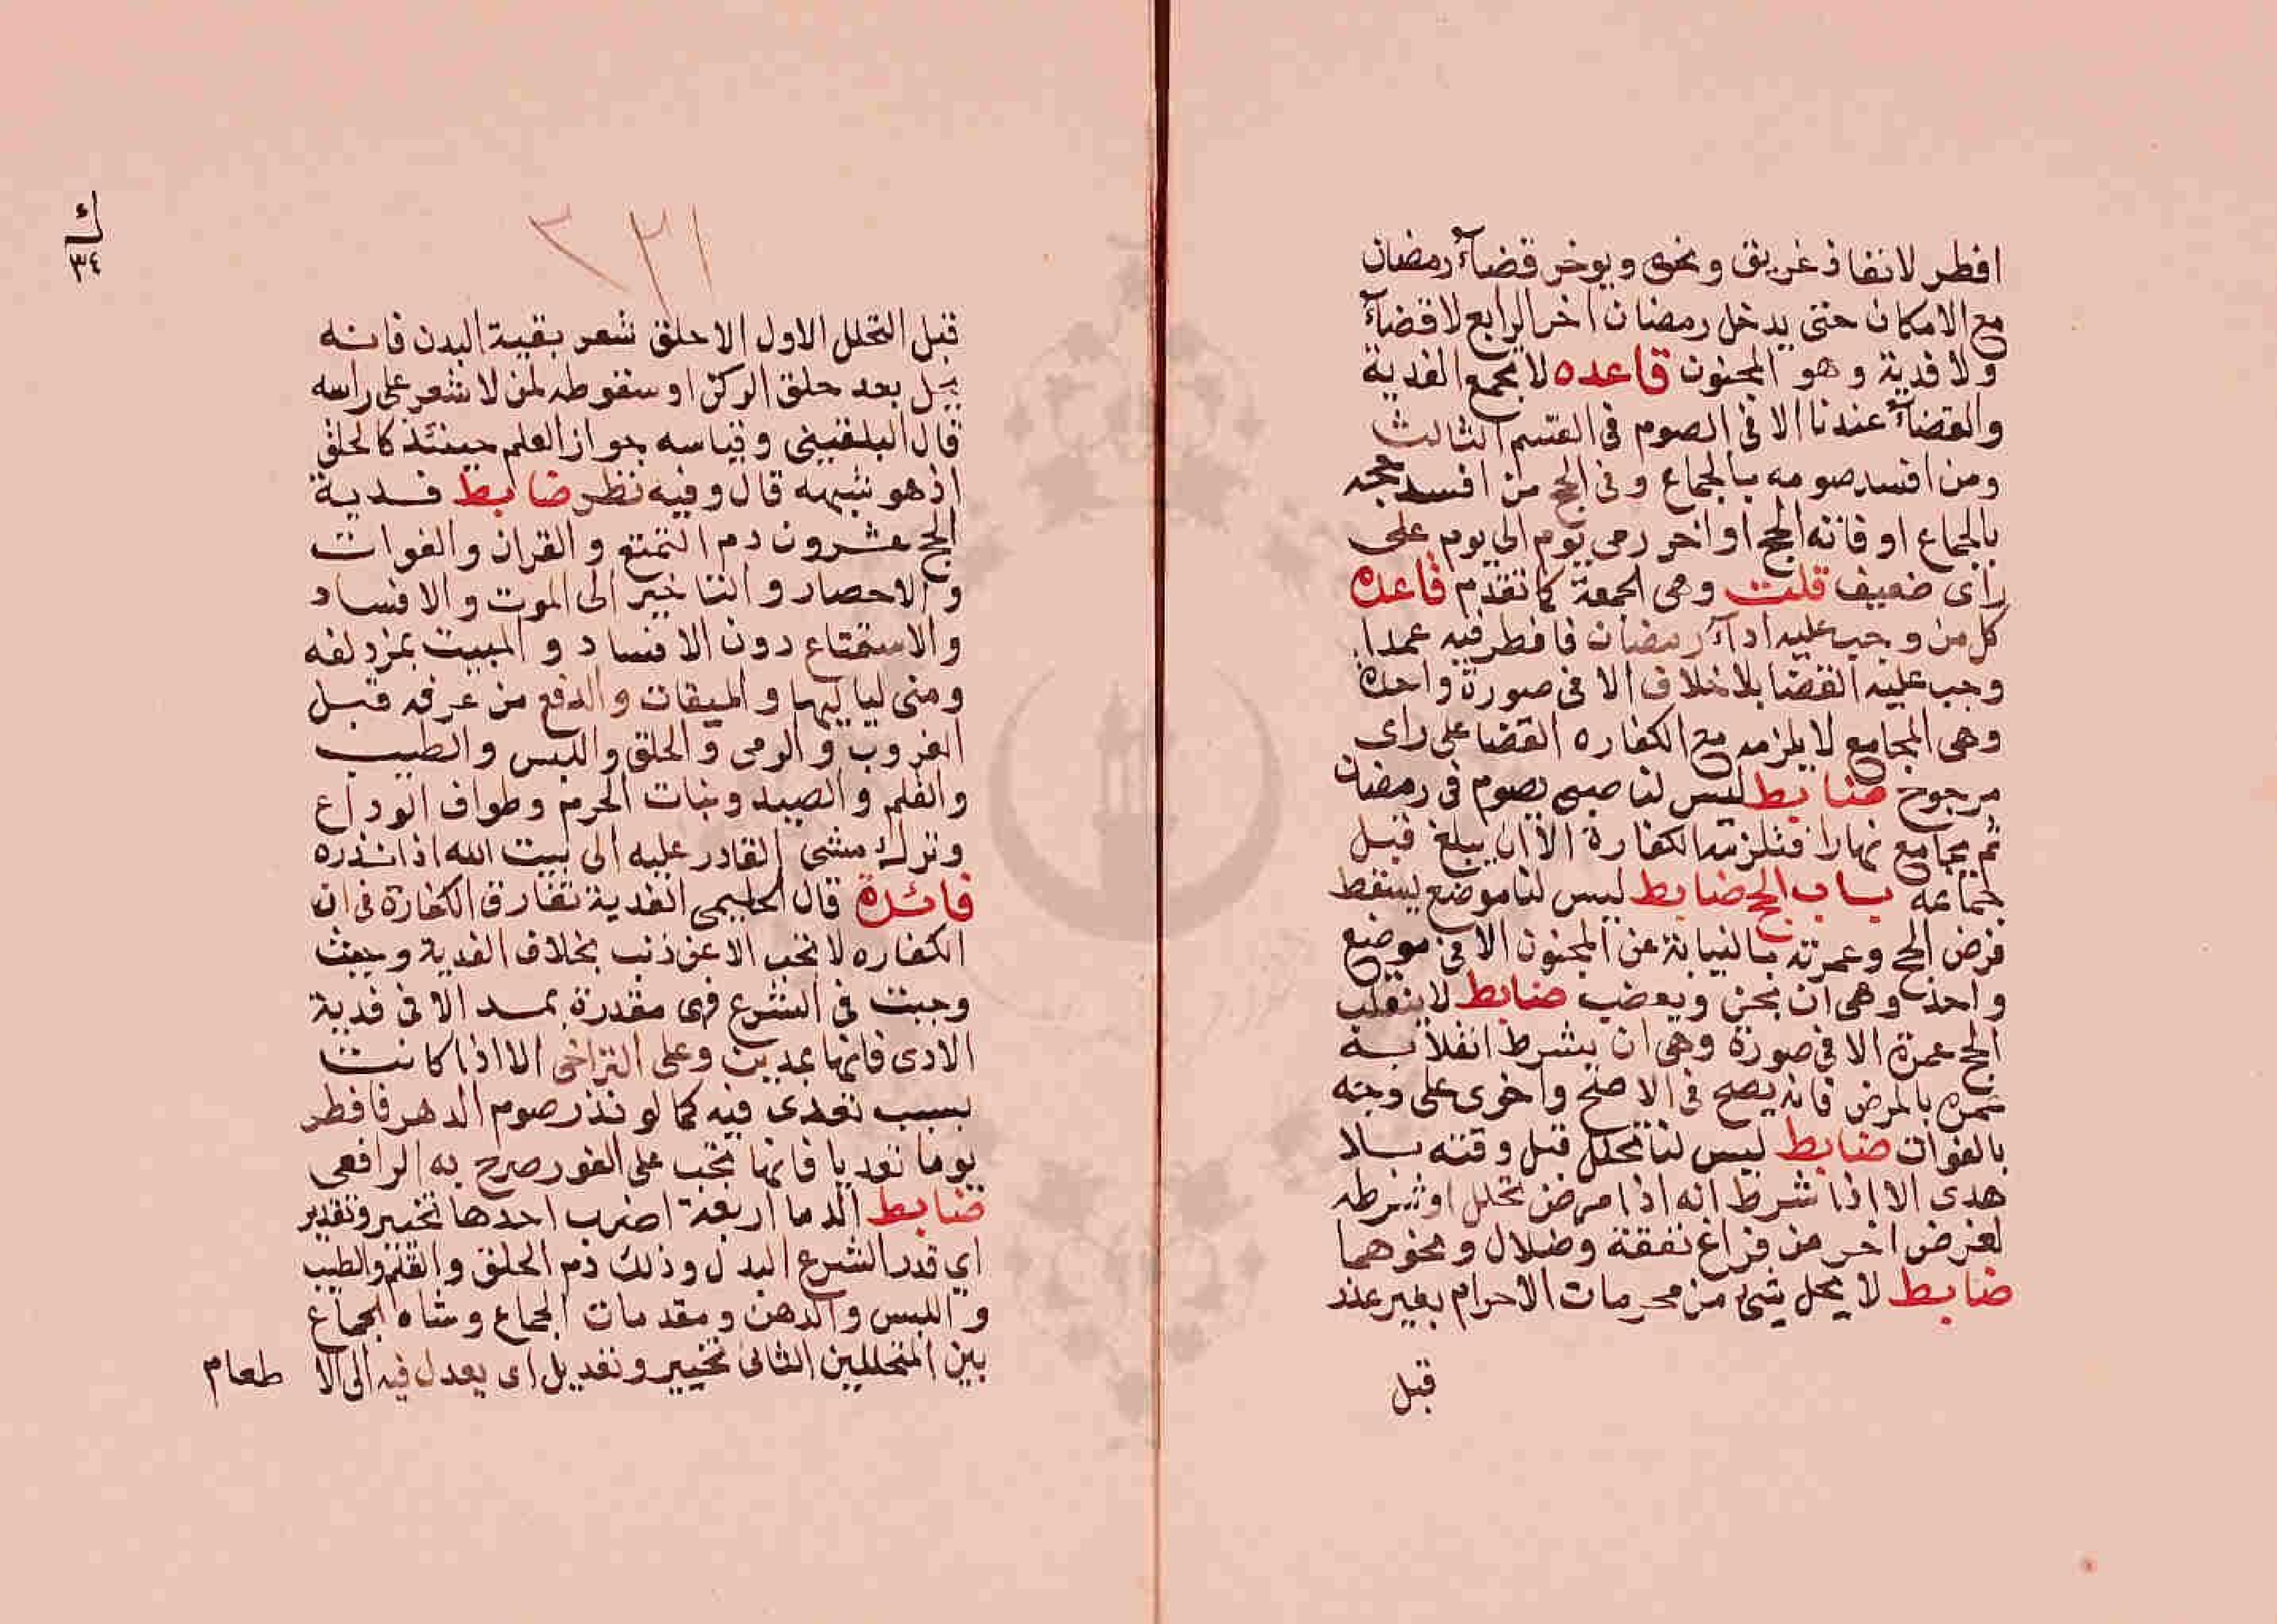 افطر لانقاذ غريق ونحوه ويوخر قضاء رمضان
مع الامكان حتى يدخل رمضان اخر الرابع لا قضاء
ولا فدية وهو المجنون قاعده لا تجمع الفدية
والقضاء عندنا الا فى الصوم فى القسم الثالث
ومن افسد صومه بالجماع وفى الحج من افسد حجه
بالجماع او فاته الحج او اخر رمى يوم الى يوم على
راى ضعيف قلت وهى الجمعة كما تقدم قاعدة
كل من وجب عليه اداء رمضان فافطر فيه عمدا
وجب عليه القضا بلا خلاف الا فى صورة واحدة
وهى المجامع لا يلزمه مع الكفاره القضا على راى
مرجوح ضابط ليس لنا صبى يصوم فى رمضان
ثم يجامع نهارا فتلزمه الكفارة الا ان يبلغ قبل
جماعه باب الحج ضابط ليس لنا موضع يسقط
فرض الحج وعمرته بالنيابة عن المجنون الا فى موضع
واحد وهى ان يجن ويعضب ضابط لا ينقلب
الحج عمرة الا فى صورة وهى ان يشرط انقلابه
عمرة بالمرض فانه يصح فى الاصح واخرى على وجه
بالفوات ضابط ليس لنا تحلل قبل وقته بلا
هدى الا اذا شرط انه اذا مرض تحلل او شرطه
لغرض اخر من فراغ نفقة وضلال ونحوهما
ضابط لا يحل شئ من محرمات الاحرام بغير عذر
قبل
ك
٣٤
قبل التحلل الاول الا حلق شعر بقية البدن فانه
يحل بعد حلق الركن او سقوطه لمن لا شعر على راسه
قال البلقينى وقياسه جواز القلم حينئذ كالحلق
اذ هو شبيهه قال وفيه نظر ضابط فدية
الحج عشرون دم التمتع والقران والفوات
والاحصار والتاخير الى الموت والافساد
والاستمتاع دون الافساد والمبيت بمزدلفه
ومنى لياليها والميقات والدفع من عرفه قبل
الغروب والرمى والحلق واللبس والطيب
والقلم والصيد ونبات الحرم وطواف الوداع
وترك مشى القادر عليه الى بيت الله اذا نذره
فائدة قال الحليمى الفدية تفارق الكفارة فى ان
الكفاره لا تجب الا عن ذنب بخلاف الفدية وحيث
وجبت فى الشرع فهى مقدرة بمد الا فى فدية
الاذى فانها بمدين وعلى التراخى الا اذا كانت
بسبب تعدى فيه كما لو نذر صوم الدهر فافطر
يوما تعديا فانها تجب على الفور صرح به الرافعى
ضابط الدما اربعة اضرب احدها تخيير وتقدير
اى قدر الشرع البدل وذلك دم الحلق والقلم والطيب
واللبس والدهن ومقدمات الجماع وشاه الجماع
بين المتحللين الثانى تخيير وتعديل اى يعدل فيه الى الا طعام